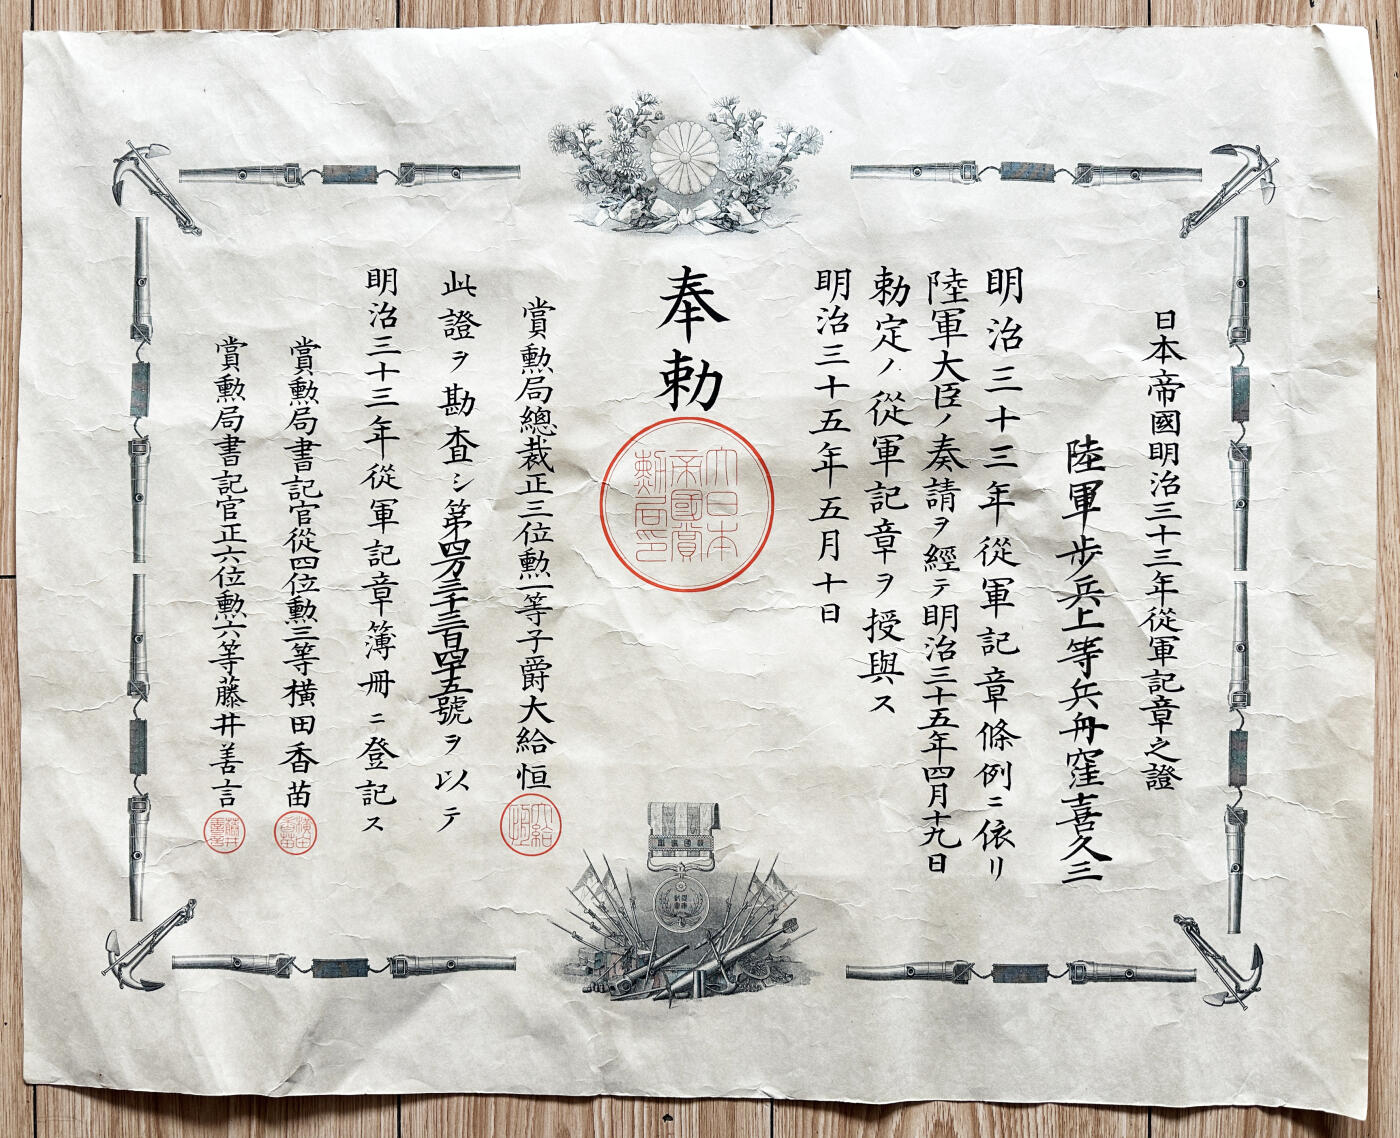 日本帝國明治三十三年從軍記章之證
陸軍歩兵上等兵舟窪喜久三
明治三十三年從軍記章條例ニ依リ
陸軍大臣ノ奏請ヲ經テ明治三十五年四月十九日
勅定ノ從軍記章ヲ授與ス
明治三十五年五月十日
奉勅
大日本
帝國賞
勳局印
賞勳局總裁正三位勳一等子爵大給恒
大給
恒
此證ヲ勘査シ第四万三千三百四十五號ヲ以テ
明治三十三年從軍記章簿冊ニ登記ス
賞勳局書記官從四位勳三等橫田香苗
橫田
香苗
賞勳局書記官正六位勳六等藤井善言
藤井
善言